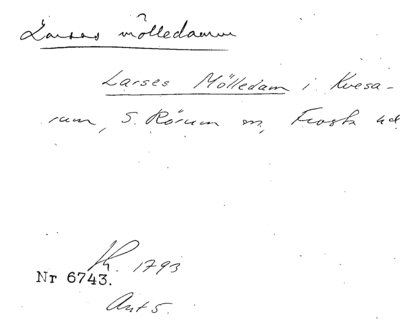 Larses mölledamm
Larses Mölledam i Kvesa-
rum, S. Rörum sn, Frosta hd
Kk. 1793
Nr 6743.
Ant 5.